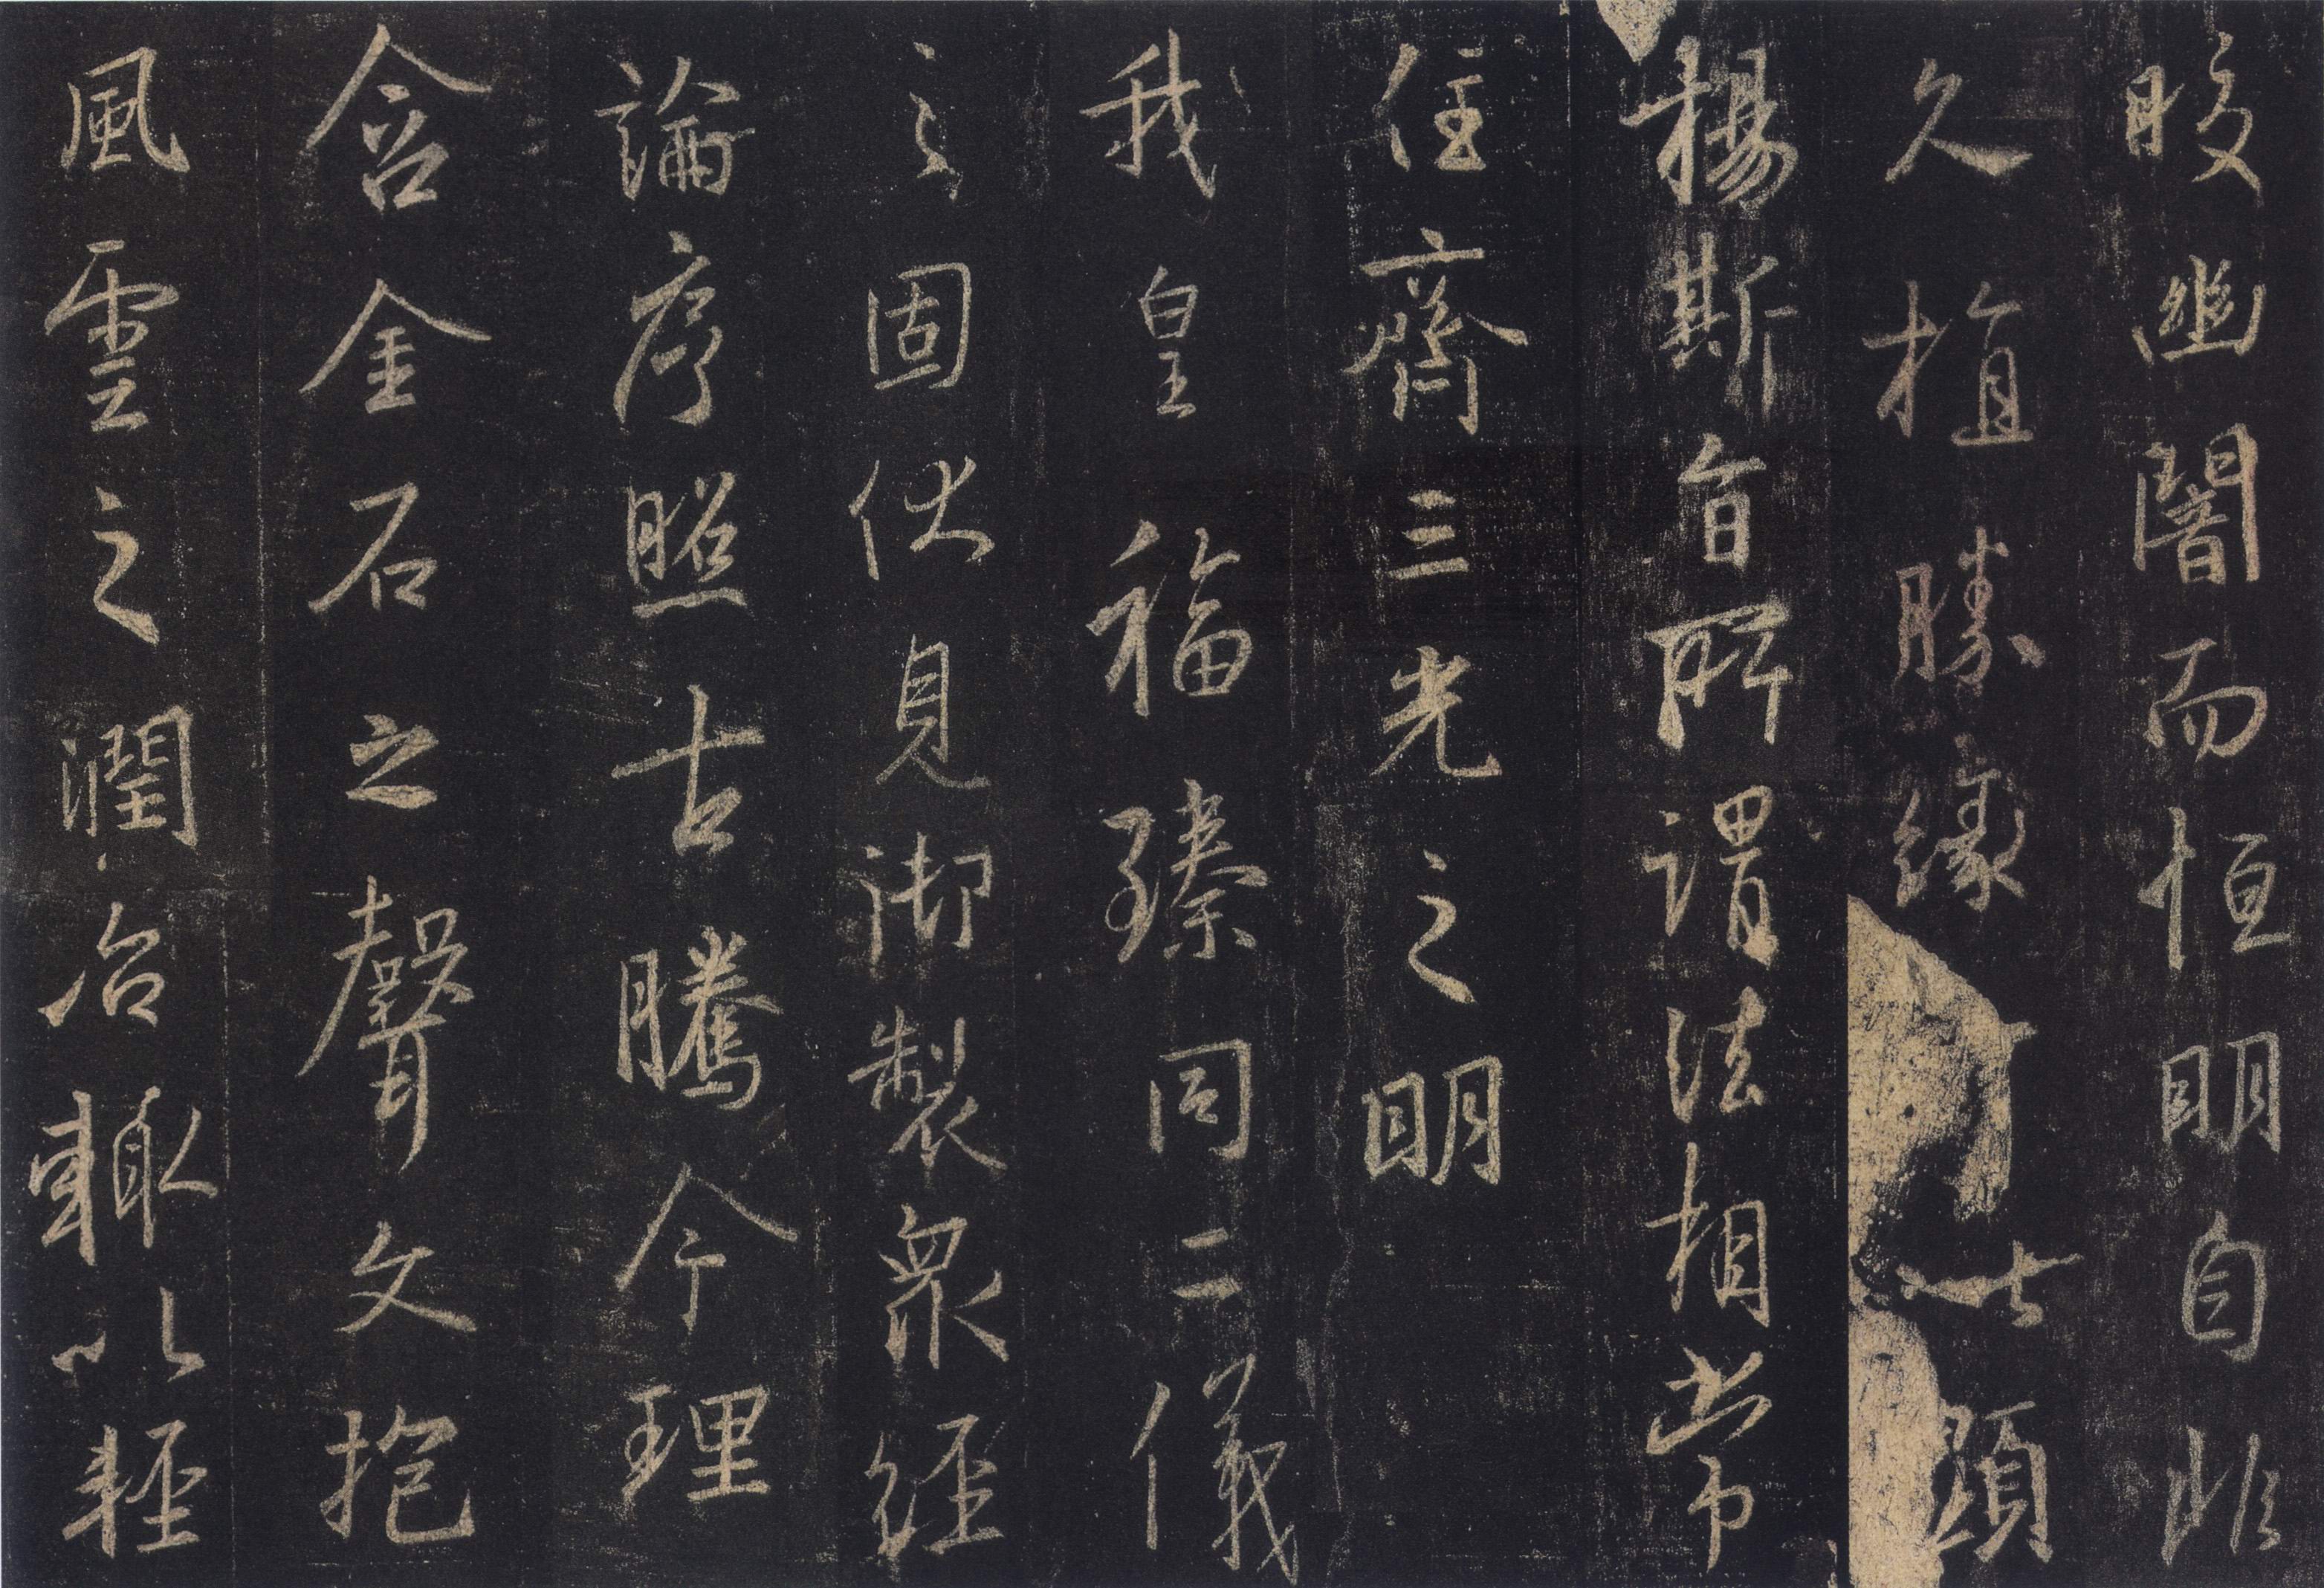 昏幽闇而恒明自非
久植勝緣何以顯
揚斯旨所謂法相常
住齊三光之明
我皇福臻同二儀
之固伏見御製眾經
論序照古騰今理
含金石之聲文抱
風雲之潤治輒以輕